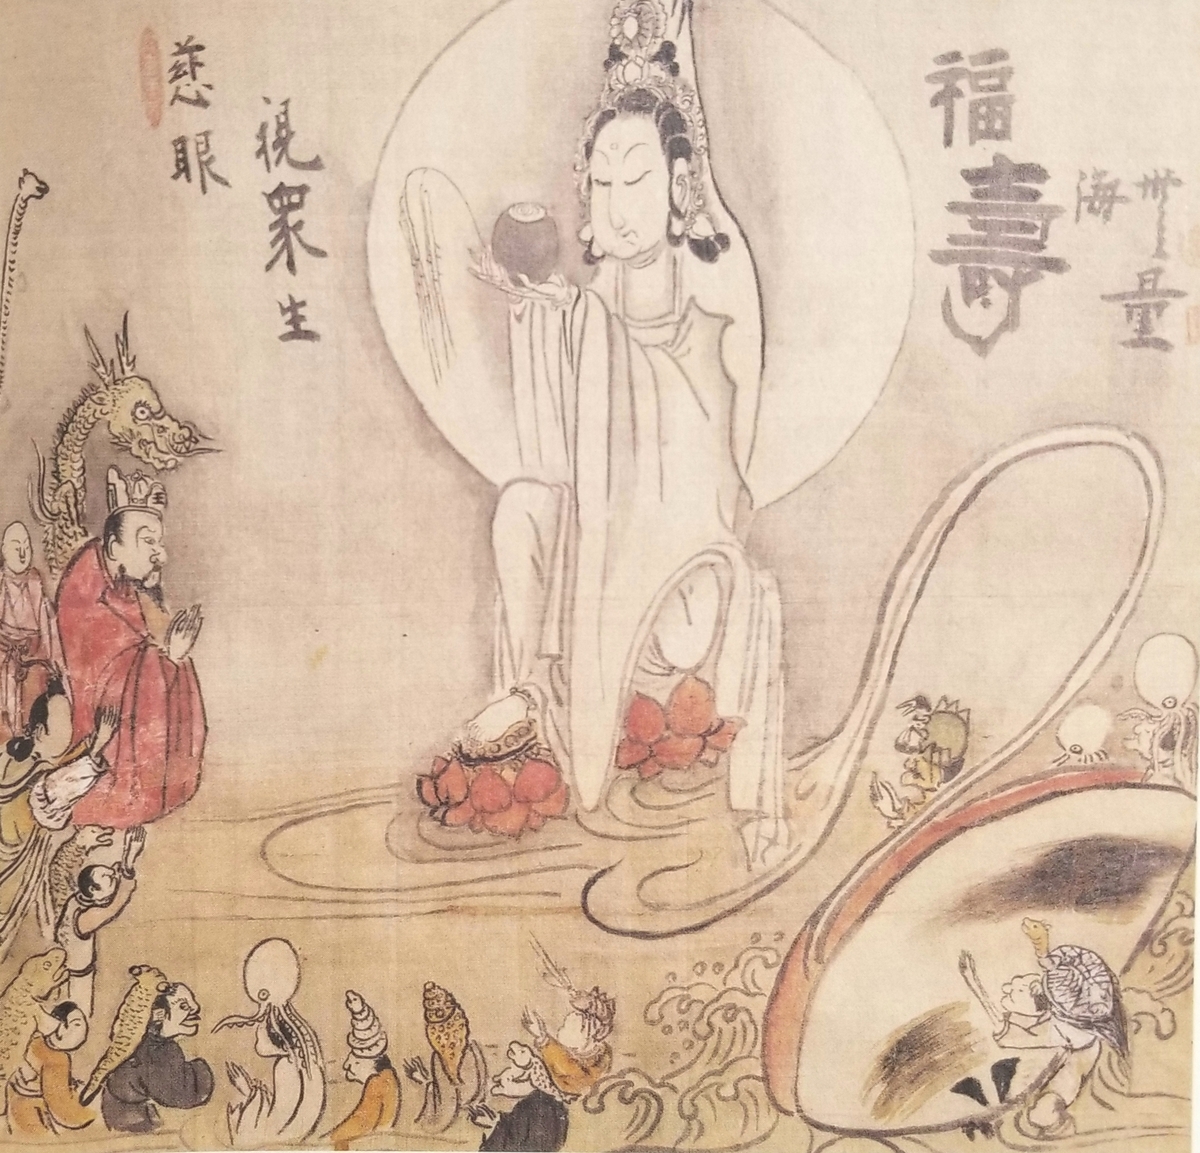 慈眼
視衆生
福壽
海
無量